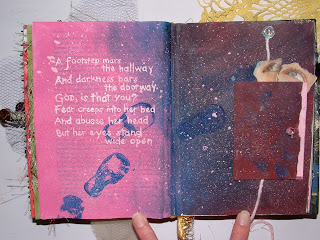 A footstep mars
the hallway
And darkness bars
the doorway.
God, is that you?
Fear creeps into her bed
And abuses her head
But her eyes stand
wide open